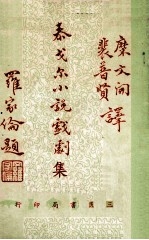 糜文開
裴普賢 譯
泰戈尔小說戲劇集
羅家倫題
三民書局印行